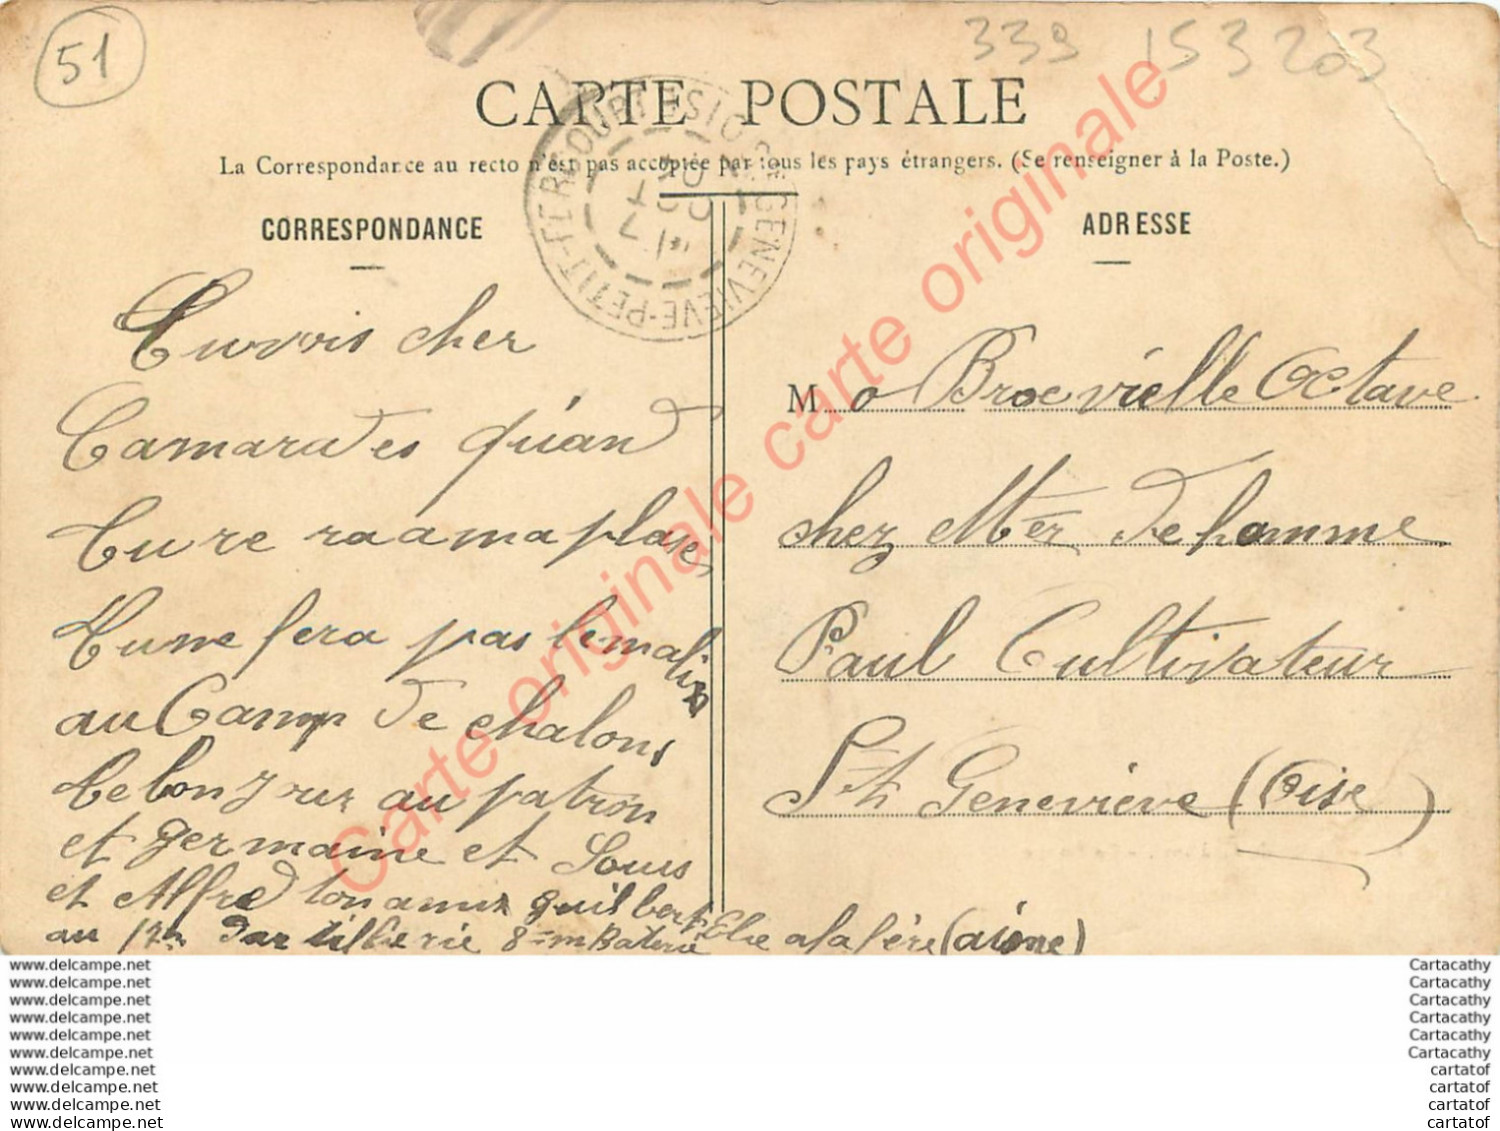 51
339 153203
CARTE POSTALE
La Correspondance au recto n'est pas acceptée par tous les pays étrangers. (Se renseigner à la Poste.)
CORRESPONDANCE
Tuvois cher
Camarades quánd
tu re raamaplase
tune fera pas lemalin
au Camp de chalons
le bonjour au patron
et germaine et Louis
et Alfred tonamis guilbert Elie alafère (aisne)
au 17m dartillerie 8=m Baterie
ADRESSE
M o Broevielle Octave
chez Mter Dehomme
Paul Cultivateur
St Geneviève (Oise)
STE GENEVIEVE-PETIT-FERCOURT
Carte originale carte originale Carte originale
www.delcampe.net
www.delcampe.net
www.delcampe.net
www.delcampe.net
www.delcampe.net
www.delcampe.net
www.delcampe.net
www.delcampe.net
www.delcampe.net
www.delcampe.net
Cartacathy
Cartacathy
Cartacathy
Cartacathy
Cartacathy
Cartacathy
cartatof
cartatof
cartatof
cartatof